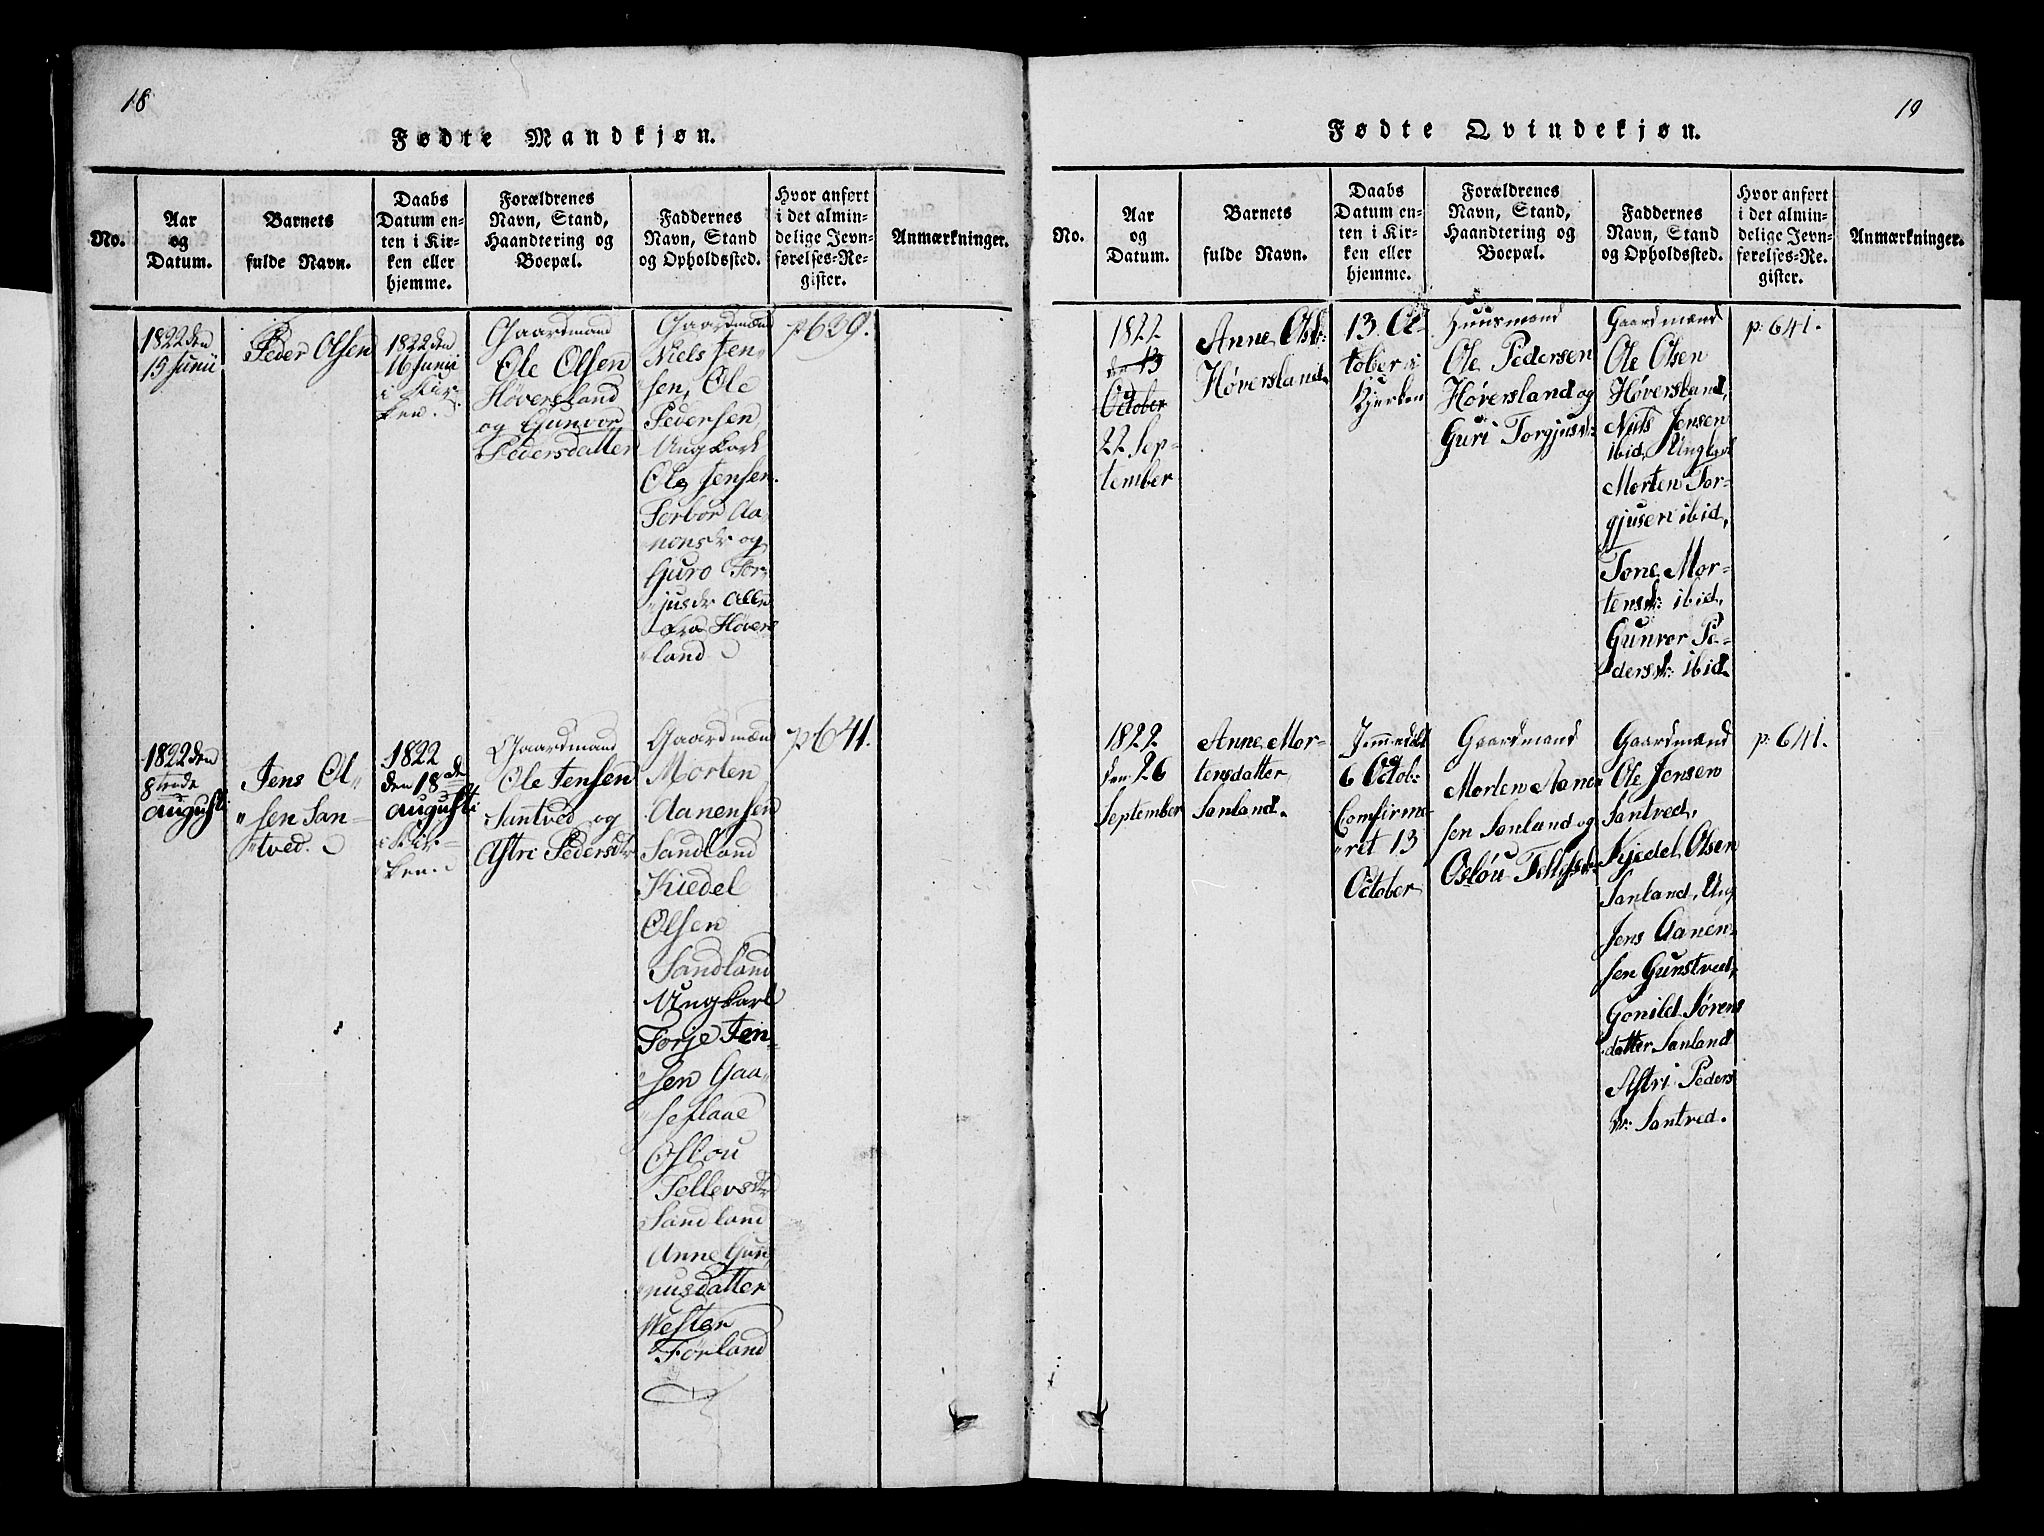 18
Fødte Mandkjøn.
No.
Aar
og
Datum.
Barnets
fulde Navn.
Daabs
Datum en-
ten i Kir-
ken eller
hjemme.
Forældrenes
Navn, Stand,
Haandtering og
Boepæl.
Faddernes
Navn, Stand
og Opholdssted.
Hvor anført
i det almin-
delige Jevn-
førelses-Re-
gister.
Anmærkninger.
1822 den
15 Junii
Peder Olsen
1822 den
16 Junii
i Kir-
ken.
Gaardmand
Ole Olsen
Høversland
og Gunvor
Pedersdatter
Gaardmænd
Niels Jen-
sen, Ole
Pedersen
Ungkarl
Ole Jensen
Torbor Aa-
nensdr og
Guro Tor-
jusdr alle
fra Høvers
land
p 639.
1822 den
8tende
augusti
Jens Ol-
sen San-
tved.
1822
den 18de
augusti
i Kir-
ken.
Gaardmand
Ole Jensen
Santved og
Astri Pedersdtr
Gaardmænd
Morten
Aanensen
Sandland
Kiedel
Olsen
Sandland
Ungkarl
Torje Jen-
sen Gaa-
seflaae
Oslou
Tellevsdtr
Sandland
Anne Gun
nusdatter
Wester
Førland
p 641.
19
Fødte Qvindekjøn.
No.
Aar
og
Datum.
Barnets
fulde Navn.
Daabs
Datum en-
ten i Kir-
ken eller
hjemme.
Forældrenes
Navn, Stand,
Haandtering og
Boepæl.
Faddernes
Navn, Stand
og Opholdssted.
Hvor anført
i det almin-
delige Jevn-
førelses-Re-
gister.
Anmærkninger.
1822
den 13
October
22 Sep-
tember
Anne Olsdr:
Høversland
13 Oc-
tober i
Kjerken
Huusmand
Ole Pedersen
Høversland og
Guri Torgjusdr:
Gaardmænd
Ole Olsen
Høversland,
Niels Jensen
ibid, Ungkarl
Morten Tor-
gjusen ibid,
Tone Mor-
tensdr: ibid,
Gunvor Pe-
dersdr: ibid.
p: 641.
1822
den 26
September
Anne Mor-
tensdatter
Sanland.
Hjemmedøbt
6 Octob:
Comfirme-
ret 13
October
Gaardmand
Morten Aanen
sen Sanland og
Oslou Tellefsdr
Gaardmænd
Ole Jensen
Santved,
Kjedel Olsen
Sanland, Ung
Jens Aanen-
sen Gunstved,
Gonild Sørens
datter Sanland
Astri Peders
dr: Santved.
p: 641.